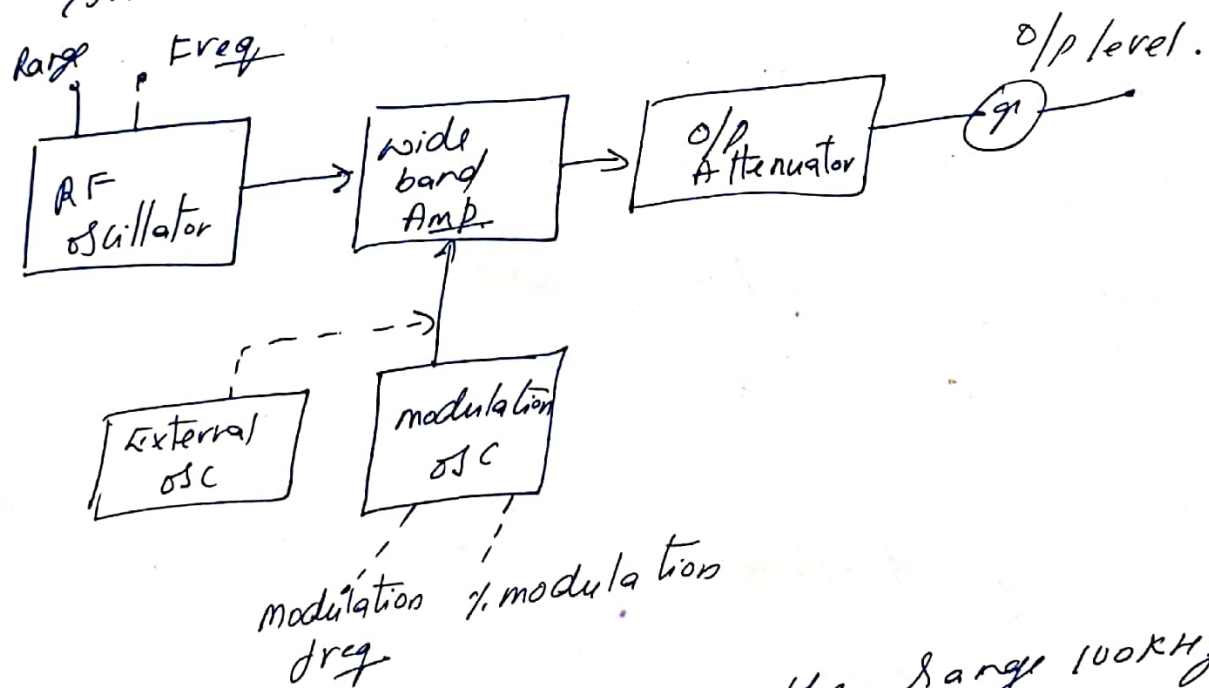 Range
Freq
O/P level.
RF
oscillator
wide
band
Amp.
O/P
Attenuator
External
osc
modulation
osc
modulation
freq
% modulation
range 100KHz